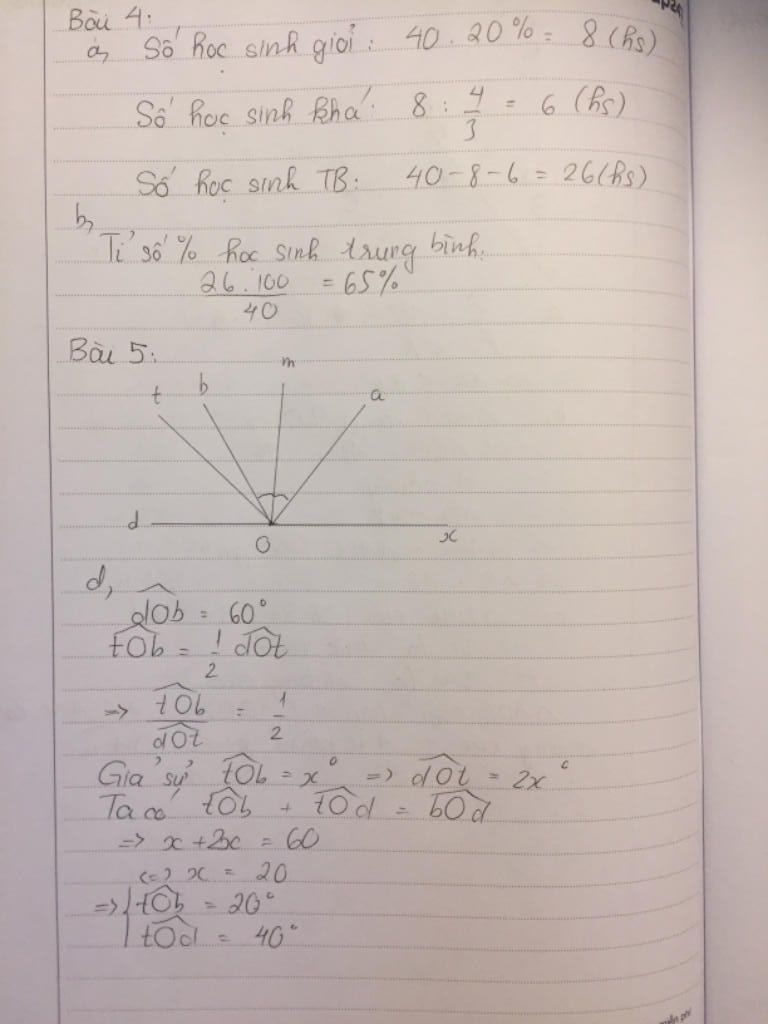 Bài 4:
a, Số học sinh giỏi: 40 . 20% = 8 (hs)
Số học sinh khá: 8 : 4/3 = 6 (hs)
Số học sinh TB: 40 - 8 - 6 = 26 (hs)
b,
Tỉ số % học sinh trung bình:
26 . 100 / 40 = 65%
Bài 5:
t b m a
d O x
d,
dOb = 60°
tOb = 1/2 dOt
=> tOb / dOt = 1/2
Giả sử tOb = x° => dOt = 2x°
Ta có tOb + tOd = bOd
=> x + 2x = 60
<=> x = 20
=> { tOb = 20°
tOd = 40°